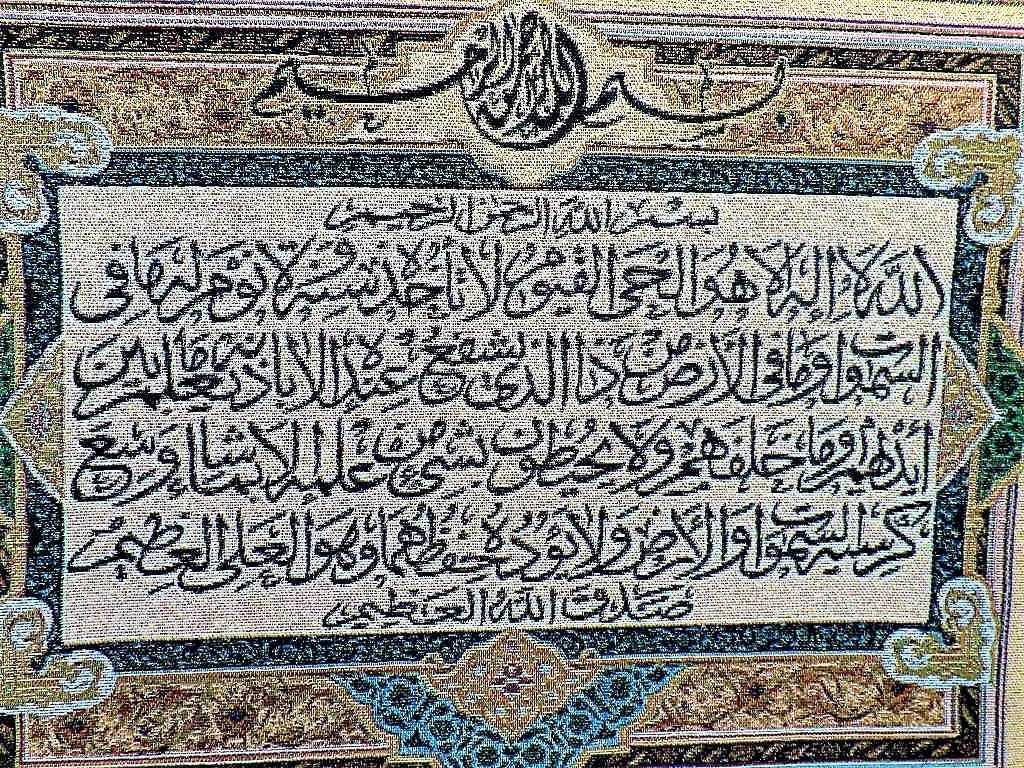 بسم الله الرحمن الرحيم
بسم الله الرحمن الرحيم
الله لا إله إلا هو الحي القيوم لا تأخذه سنة ولا نوم له ما في
السموات وما في الأرض من ذا الذي يشفع عنده إلا بإذنه يعلم ما بين
أيديهم وما خلفهم ولا يحيطون بشيء من علمه إلا بما شاء وسع
كرسيه السموات والأرض ولا يؤده حفظهما وهو العلي العظيم
صدق الله العظيم